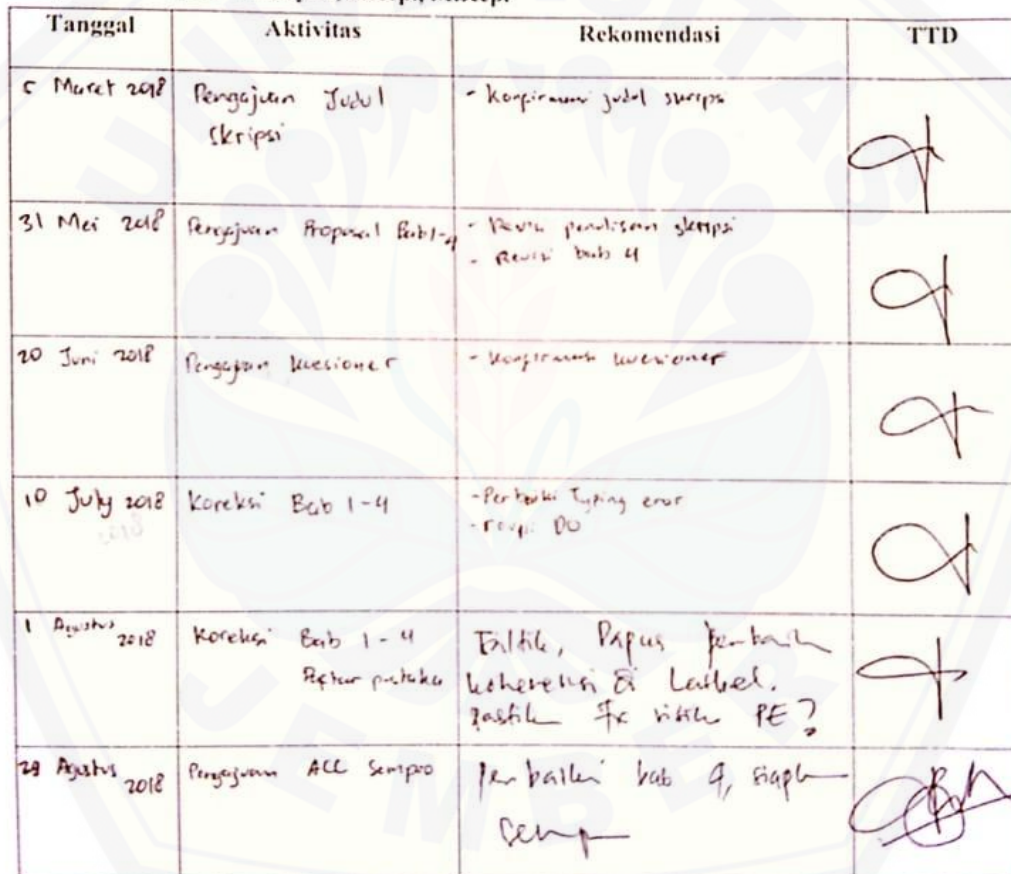 Tanggal Aktivitas Rekomendasi TTD
5 Maret 2018 Pengajuan Judul - Konfirmasi judul skripsi
Skripsi
31 Mei 2018 Pengajuan Proposal Bab 1-4 - Revisi penulisan skripsi
- Revisi bab 4
20 Juni 2018 Pengajuan kuesioner - Konfirmasi kuesioner
10 July 2018 Koreksi Bab 1-4 - Perbaiki Typing eror
- DO
1 Agustus 2018 Koreksi Bab 1-4 perbaiki
pustaka koherensi di Latbel.
PE?
29 Agustus 2018 Pengajuan ACC Sempro perbaiki bab 4, siapkan
UNIVERSITAS
JEMBER